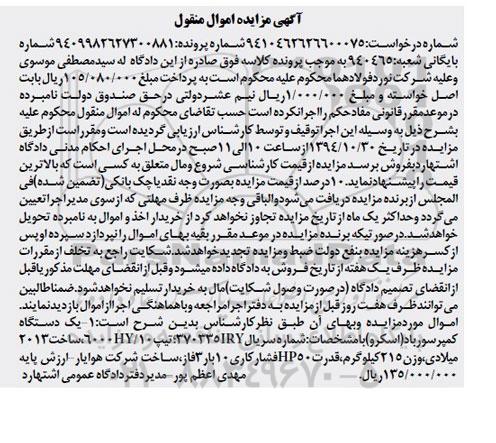 آگهی مزایده اموال منقول
شماره درخواست:۹۴۱۰۴۶۲۶۲۶۶۰۰۰۷۵شماره پرونده:۹۴۰۹۹۸۲۶۲۷۳۰۰۸۸۱شماره
بایگانی شعبه:۹۴۰۴۶۵ به موجب پرونده کلاسه فوق صادره از این دادگاه له سیدمصطفی موسوی
وعلیه شرکت نوردفولادهما محکوم علیه محکوم است به پرداخت مبلغ ۱۰۵/۰۸۰/۰۰۰ریال بابت
اصل خواسته و مبلغ ۱/۰۰۰/۰۰۰ریال نیم عشردولتی درحق صندوق دولت نامبرده
درموعدمقررقانونی مفادحکم رااجرانکرده است حسب تقاضای محکوم له اموال منقول محکوم علیه
بشرح ذیل به وسیله این اجراتوقیف و توسط کارشناس ارزیابی گردیده است ومقرراست ازطریق
مزایده در تاریخ ۱۳۹۴/۱۰/۳۰ازساعت ۱۰الی۱۱صبح درمحل اجرای احکام مدنی دادگاه
اشتهاردبفروش برسد.مزایده ازقیمت کارشناسی شروع ومال متعلق به کسی است که بالاترین
قیمت راپیشنهادنماید.۱۰درصدازقیمت مزایده بصورت وجه نقدیاچک بانکی(تضمین شده)فی
المجلس ازبرنده مزایده دریافت می شودوالباقی وجه مزایده ظرف مهلتی که ازسوی مدیراجراتعیین
می گردد وحداکثر یک ماه از تاریخ مزایده تجاوز نخواهد کرد از خریدار اخذ و اموال به نامبرده تحویل
خواهدشد.درصورتیکه برنده مزایده در موعد مقرر بقیه بهای اموال رانپردازدسپرده اوپس
از کسرهزینه مزایده بنفع دولت ضبط ومزایده تجدیدخواهدشد.شکایت راجع به تخلف ازمقررات
مزایده ظرف یک هفته از تاریخ فروش به دادگاه داده میشود وقبل ازانقضای مهلت مذکوریاقبل
ازانقضای تصمیم دادگاه (درصورت وصول شکایت)مال به خریدار تسلیم نخواهدشود.ضمناطالبین
می توانندظرف هفت روز قبل ازمزایده به دفتراجرامراجعه وباهماهنگی اجراازاموال بازدیدنمایند.
اموال موردمزایده وبهای آن طبق نظرکارشناس بدین شرح است:۱-یک دستگاه
کمپرسورباد(اسکرو)بامشخصات:شماره سریال۳۷۰۳۳۵IRY:تیپ۶۰۰۰HY/۱۰،ساخت۲۰۱۳
میلادی،وزن ۲۱۵کیلوگرم،قدرتHP۵۰فشارکاری ۱۰بار۳فاز،ساخت شرکت هوایار-ارزش پایه
۱۳۵/۰۰۰/۰۰۰ریال. مهدی اعظم پور-مدیردفتردادگاه عمومی اشتهارد